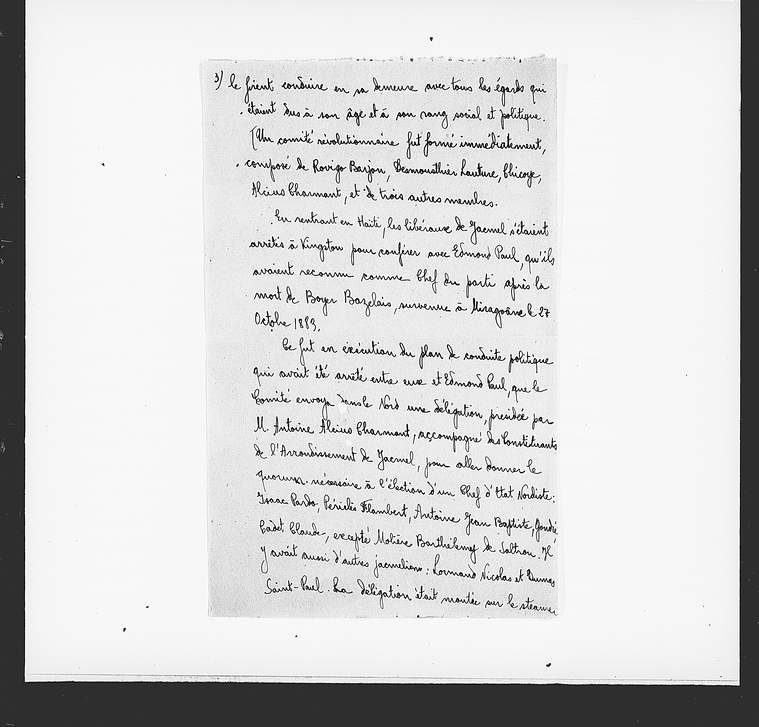 3) le firent conduire en sa demeure avec tous les égards qui
étaient dus à son âge et à son rang social et politique.
[Un comité révolutionnaire fut formé immédiatement,
composé de Rovigo Barjon, Desmousthier Lauture, Chicoye,
Alcius Charmant, et de trois autres membres.
En rentrant en Haïti, les libéraux de Jacmel s'étaient
arrêtés à Kingston pour conférer avec Edmond Paul, qu'ils
avaient reconnu comme Chef du parti après la
mort de Boyer Bazelais, survenue à Miragoâne le 27
Octobre 1883.
Ce fut en exécution du plan de conduite politique
qui avait été arrêté entre eux et Edmond Paul, que le
Comité envoya dans le Nord une délégation, présidée par
M. Antoine Alcius Charmant, accompagné des Constituants
de l'Arrondissement de Jacmel, pour aller donner le
quorum nécessaire à l'élection d'un Chef d'Etat Nordiste:
Isaac Pardo, Périclès Flambert, Antoine Jean Baptiste,
Cadet Claude, excepté Molière Barthélemy de Saltrou. Il
y avait aussi d'autres jacmeliens: Normand Nicolas et Dumas
Saint-Paul. La délégation était montée sur le steamer